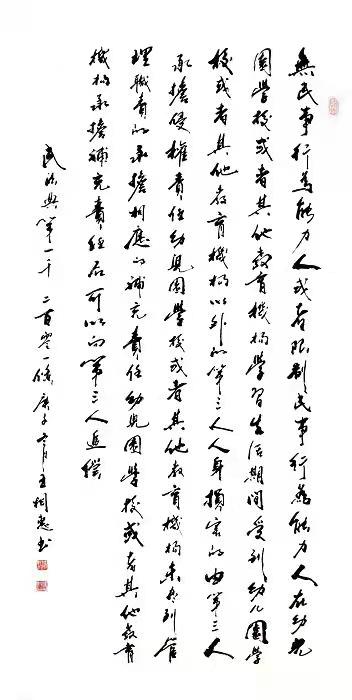 無民事行為能力人或者限制民事行為能力人在幼兒
園學校或者其他教育機構學習生活期間受到幼儿園學
校或者其他教育機構以外的第三人人身損害的由第三人
承擔侵權責任幼兒園學校或者其他教育機構未盡到管
理職責的承擔相應的補充責任幼兒園學校或者其他教育
機構承擔補充責任后可以向第三人追償
民法典第一千二百零一條庚子王相书